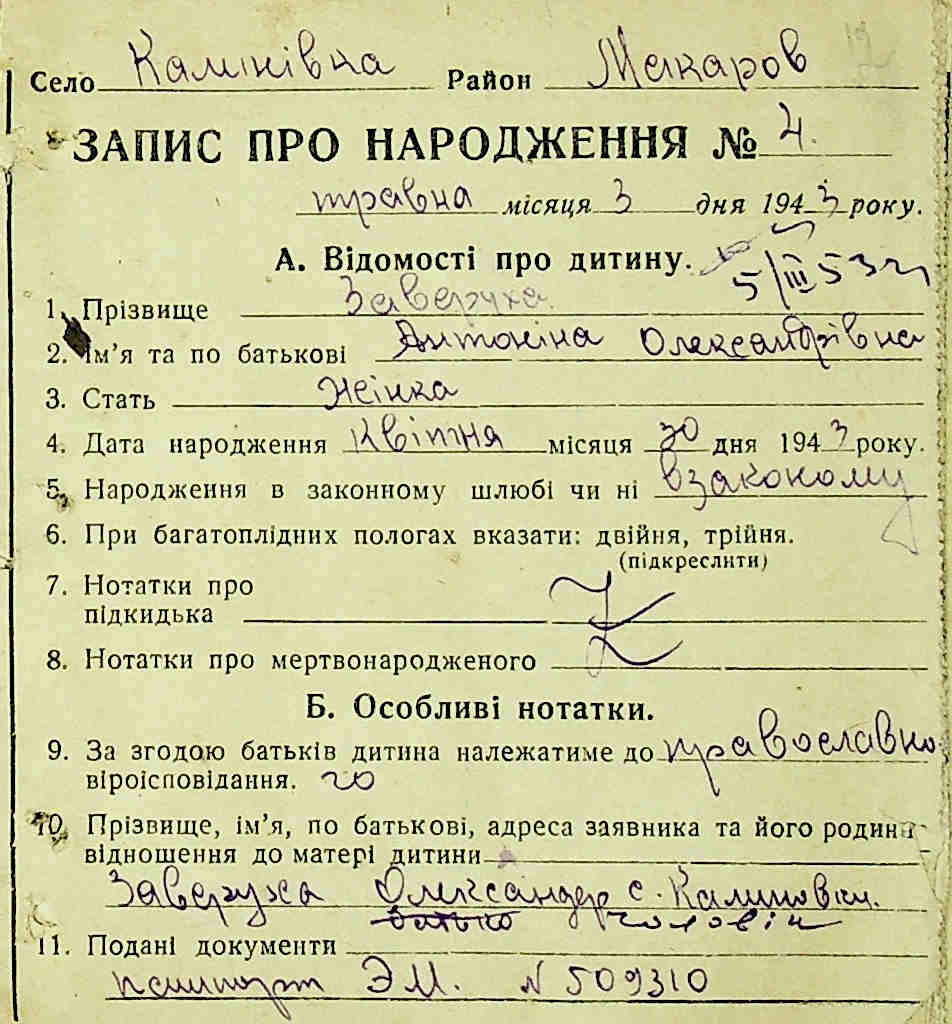 Село Калинівка Район Макаров
ЗАПИС ПРО НАРОДЖЕННЯ № 4.
травня місяця 3 дня 1943 року.
А. Відомості про дитину.
5/III 53 г.
1. Прізвище Заверуха
2. Ім’я та по батькові Антоніна Олександрівна
3. Стать Жінка
4. Дата народження Квітня місяця 30 дня 1943 року.
5. Народження в законному шлюбі чи ні в законому
6. При багатоплідних пологах вказати: двійня, трійня.
(підкреслити)
7. Нотатки про
підкидька
8. Нотатки про мертвонародженого
Б. Особливі нотатки.
9. За згодою батьків дитина належатиме до православно
віроісповідання. го
10. Прізвище, ім’я, по батькові, адреса заявника та його родин
відношення до матері дитини
Заверуха Олександер с. Калиновки.
батько чоловік
11. Подані документи
пашпорт ЭМ. N 509310